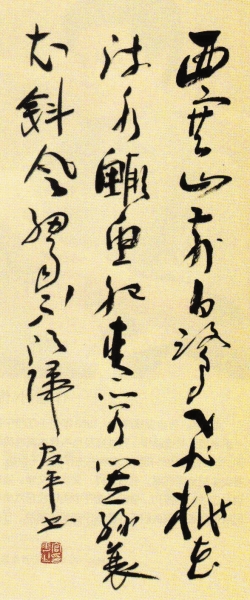 西塞山前白鹭飞桃花
流水鳜鱼肥青箬笠绿蓑
衣斜风细雨不须归 平书